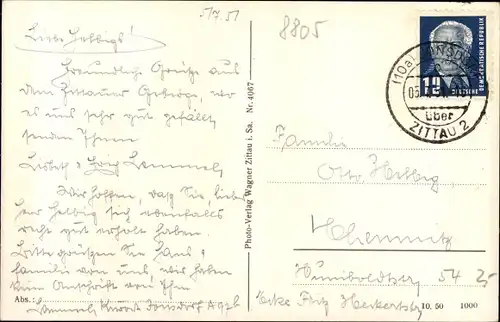 5.7.51
8805
Liebe Helbigs!
Freundliche Grüße aus
dem Zittauer Gebirge, wo
es uns sehr gut gefällt,
senden Ihnen
Lisbeth &
Wir hoffen, daß Sie, lieber
Herr Helbig sich ebenfalls
recht gut erholt haben.
Bitte grüßen Sie Hans &
Familie von uns, wir haben
kein Anschrift von Ihm
Abs.: Kurort Jonsdorf
Photo-Verlag Wagner Zittau i. Sa. Nr. 4067
12
DEUTSCHE DEMOKRATISCHE REPUBLIK
(10a)
über
ZITTAU 2
Familie
Otto Helbig
Chemnitz
Humboldtstr 54
Ecke Fritz Heckertstr
10. 50 1000